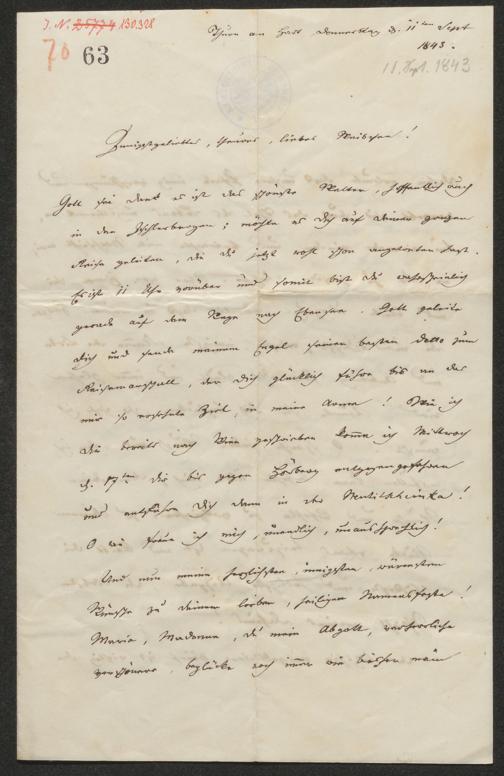 I. N. 25774 130.328
70 63
Thurn am Hart, Donnerstag d. 11ten Sept
1843.
11. Sept. 1843
Innigstgeliebtes, theures, liebes Weibchen!
Gott sei Dank es ist das schönste Wetter, hoffentlich auch
in den Ischlerbergen; möchte es Dich auf deiner ganzen
Reise geleiten, die du jetzt wohl schon angetreten hast.
Es ist 11 Uhr vorüber und somit bist du wahrscheinlich
gerade auf dem Wege nach Ebensee. Gott geleite
dich und sende meinem Engel seinen besten
Reisemarschall, der Dich glücklich führe bis an das
mir so ersehnte Ziel, in meine Arme! Wie ich
dir bereits nach Wien geschrieben komme ich Mittwoch
d. 17ten dir bis gegen entgegengefahren
und entführe Dich dann in der !
O wie freue ich mich, unendlich, unaussprechlich!
Und nun meine herzlichsten, innigsten, wärmsten
Wünsche zu deinem lieben, heiligen Namensfeste!
Maria, Madonna, du mein Abgott, verherrliche
verschönere, beglücke noch immer wie bisher mein